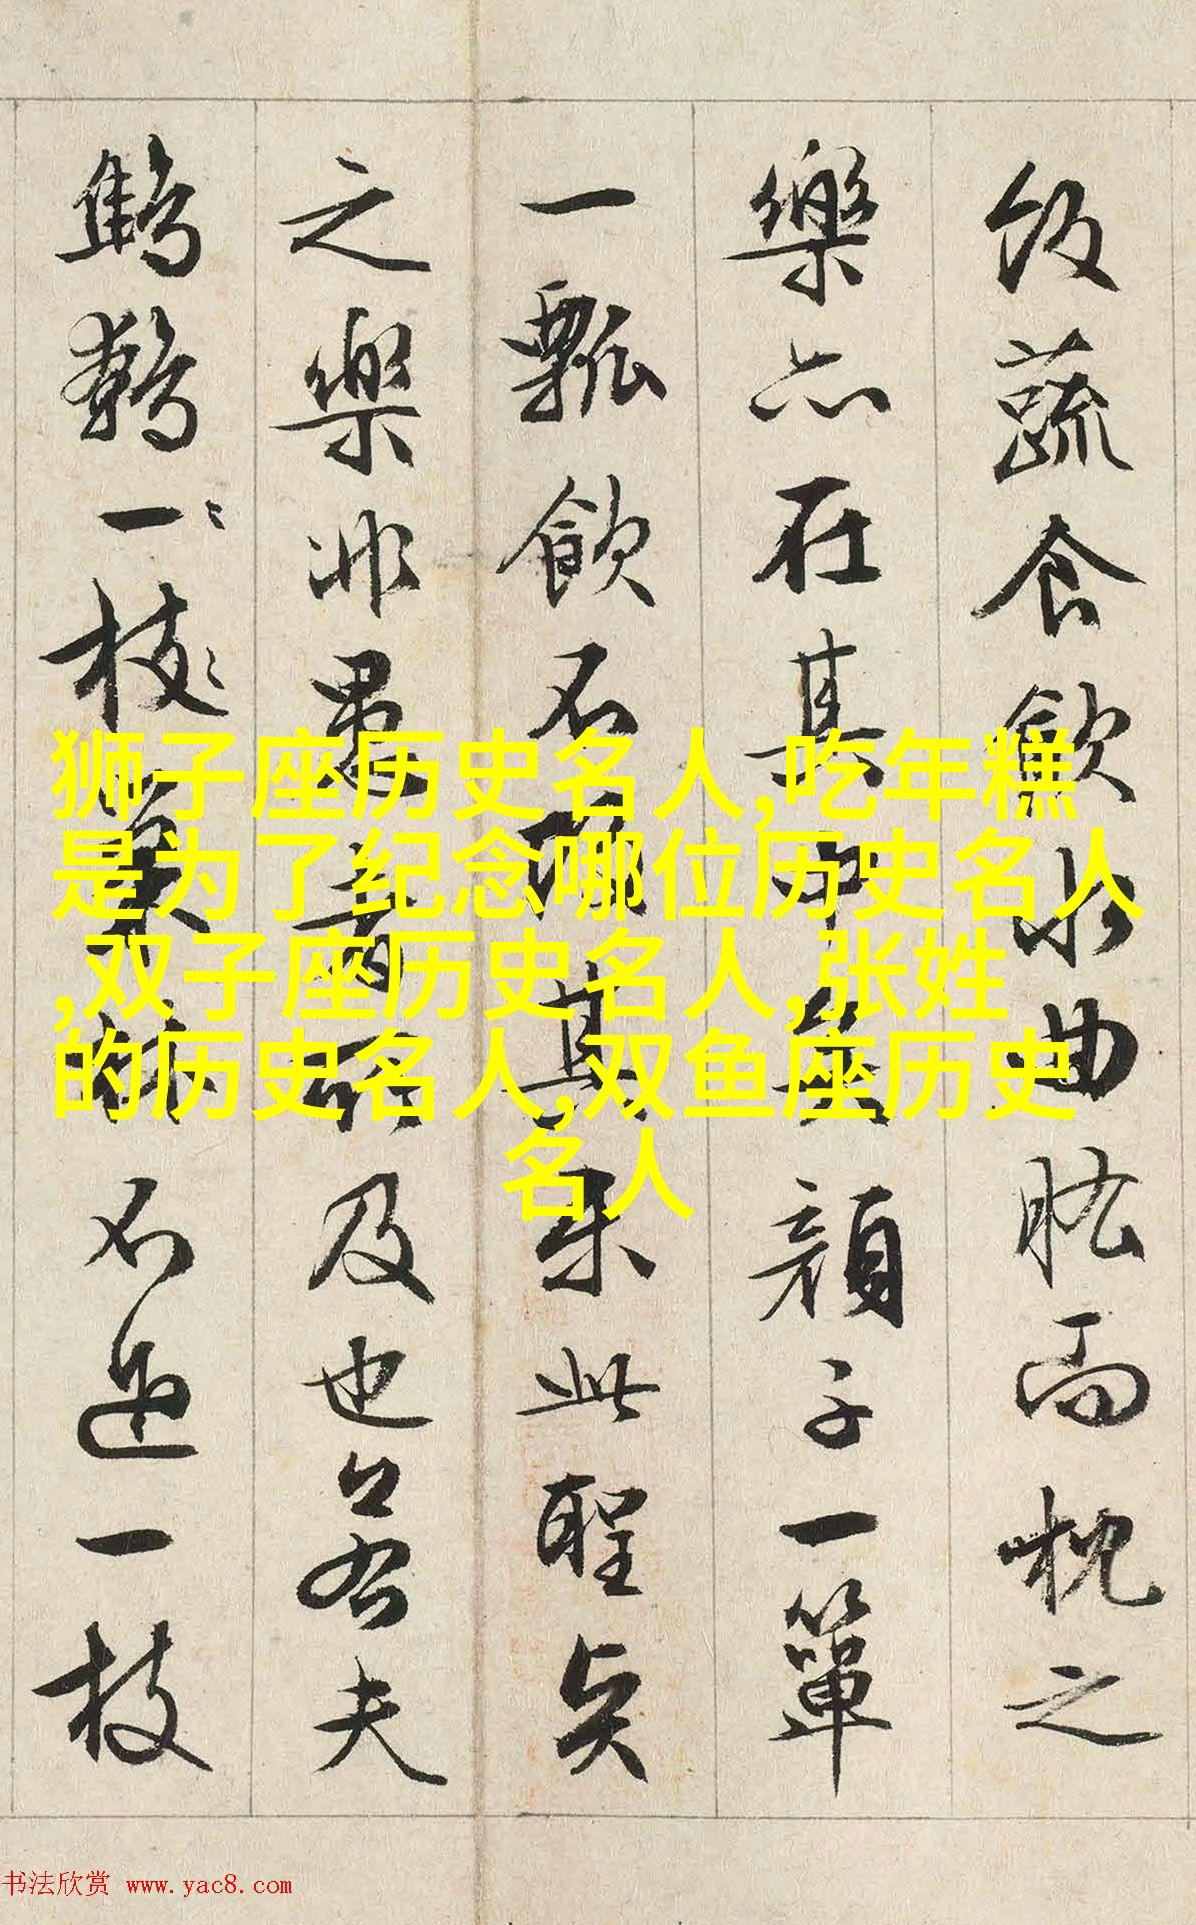 飯蔬食飲水曲肱而枕之
樂亦在其中矣顏子一簞
一瓢飲不改其樂此聖賢
之樂非愚者所及也若夫
鷦鷯一枝巢林不過一枝
狮子座历史名人,吃年糕
是为了纪念哪位历史名人
,双子座历史名人,张姓
的历史名人,双鱼座历史
名人
书法欣赏 www.yac8.com